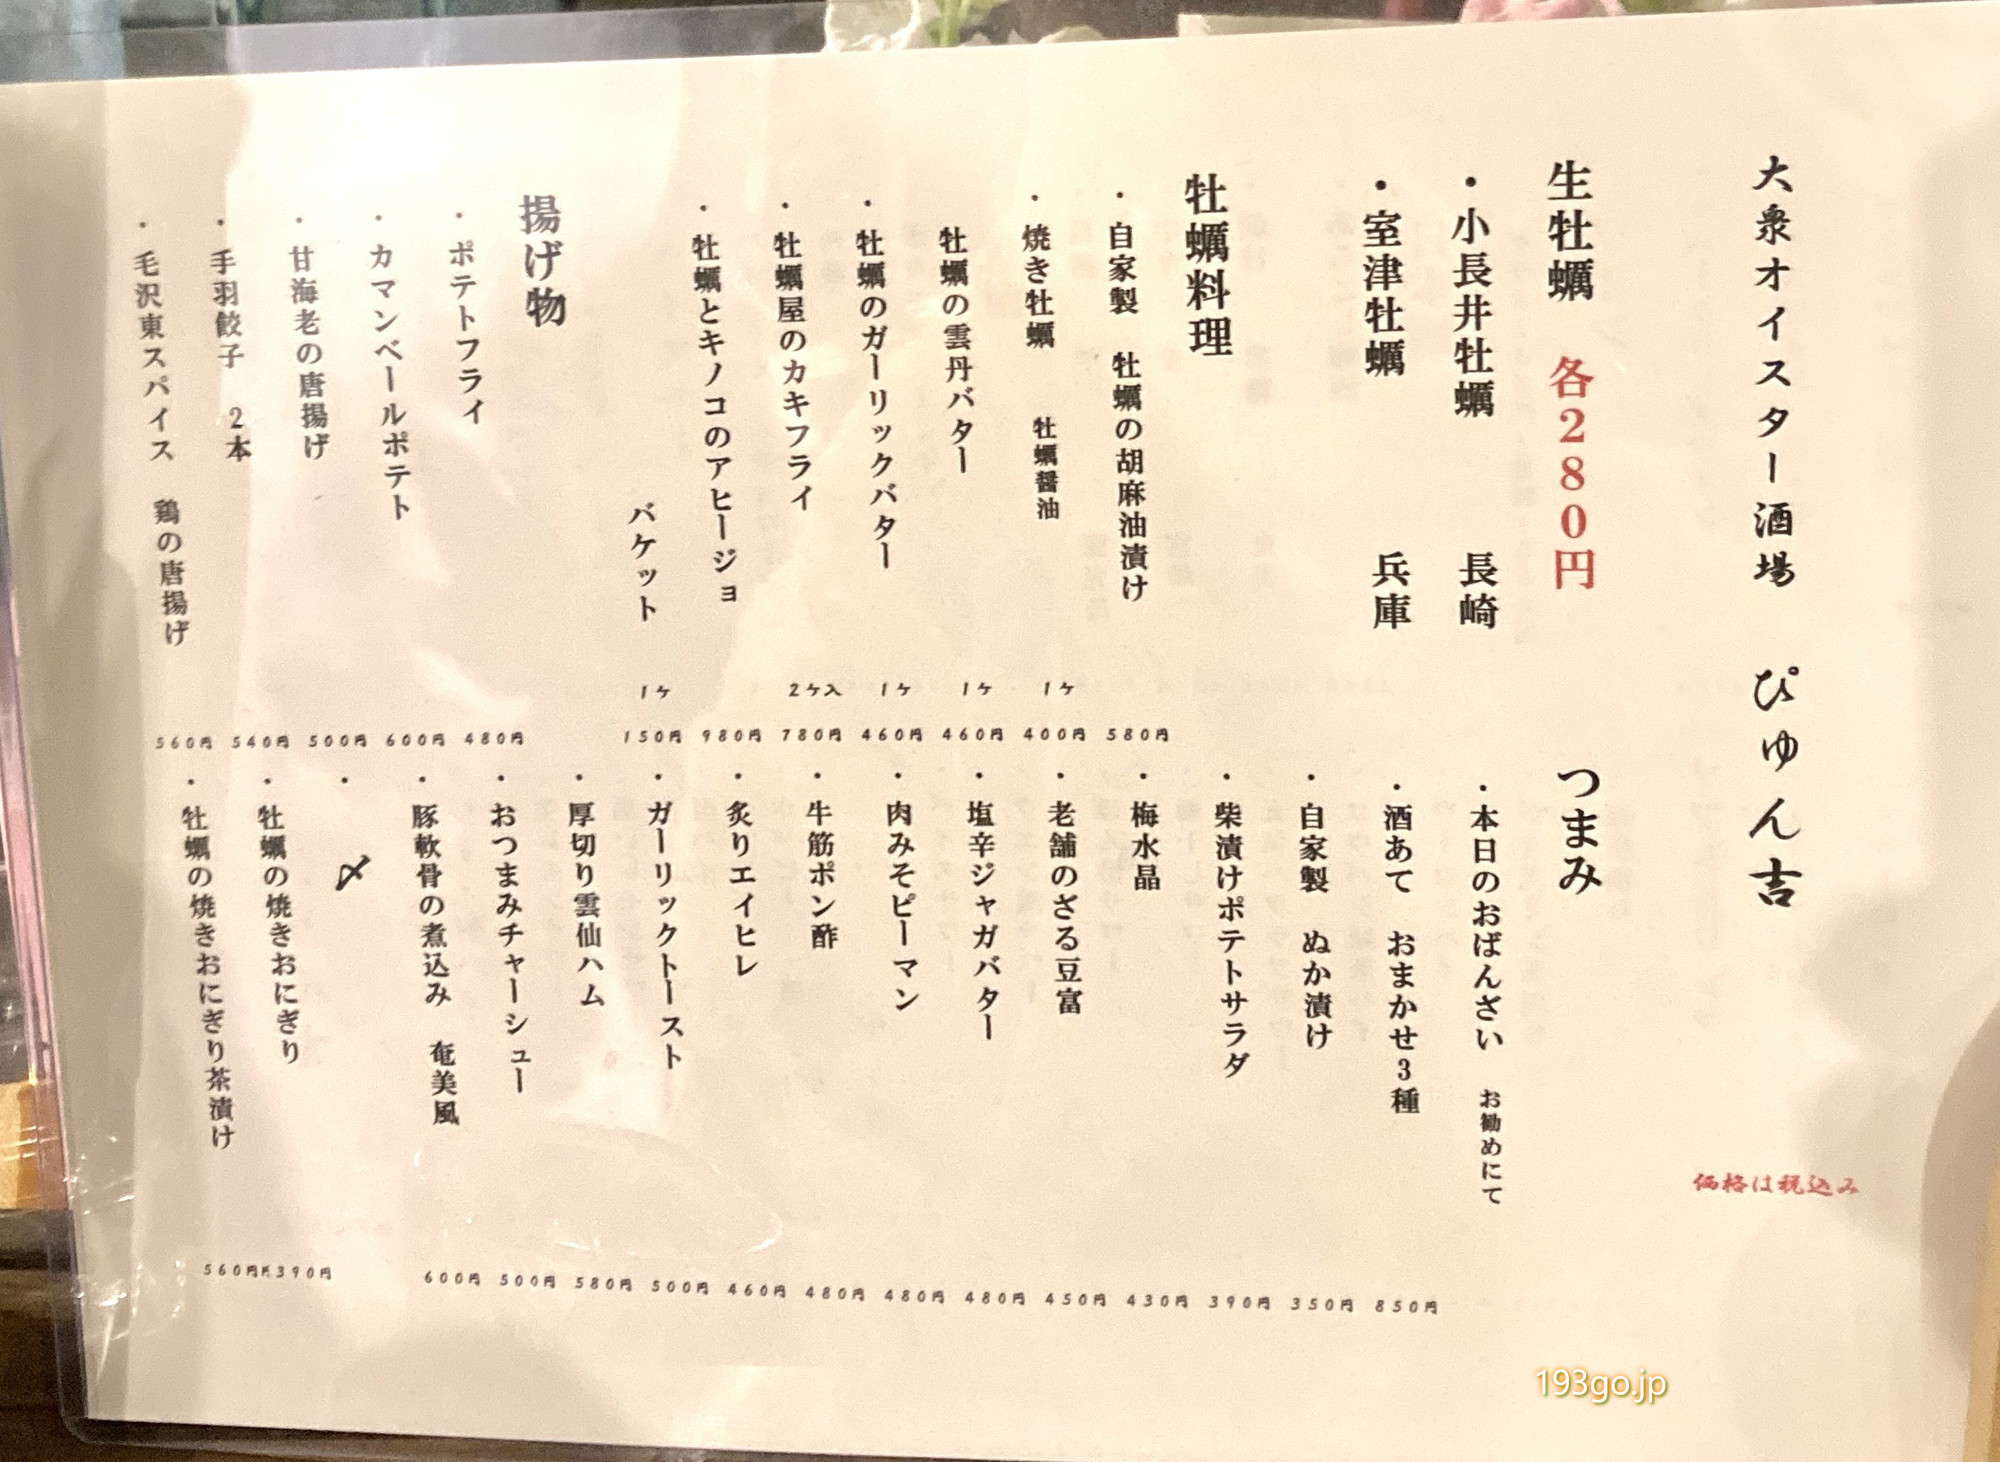 大衆オイスター酒場 ぴゅん吉
価格は税込み
生牡蠣 各280円
・小長井牡蠣 長崎
・室津牡蠣 兵庫
牡蠣料理
・自家製 牡蠣の胡麻油漬け 580円
・焼き牡蠣 牡蠣醤油 1ケ 400円
牡蠣の雲丹バター 1ケ 460円
・牡蠣のガーリックバター 1ケ 460円
・牡蠣屋のカキフライ 2ケ入 780円
・牡蠣とキノコのアヒージョ 980円
バケット 1ケ 150円
揚げ物
・ポテトフライ 480円
・カマンベールポテト 600円
・甘海老の唐揚げ 500円
・手羽餃子 2本 540円
・毛沢東スパイス 鶏の唐揚げ 560円
つまみ
・本日のおばんざい お勧めにて
・酒あて おまかせ3種 850円
・自家製 ぬか漬け 350円
・柴漬けポテトサラダ 390円
・梅水晶 430円
・老舗のざる豆富 450円
・塩辛ジャガバター 480円
・肉みそピーマン 480円
・牛筋ポン酢 480円
・炙りエイヒレ 460円
・ガーリックトースト 500円
・厚切り雲仙ハム 580円
・おつまみチャーシュー 500円
・豚軟骨の煮込み 奄美風 600円
・〆
・牡蠣の焼きおにぎり 390円
・牡蠣の焼きおにぎり茶漬け 560円
193go.jp